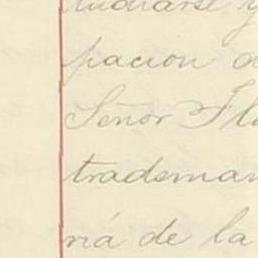 tudiarse y
pacion d
Señor Fl
trademar
riá de la